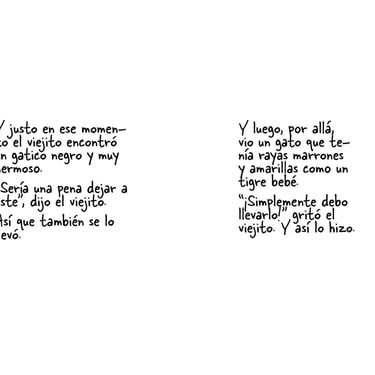 Y justo en ese momen–
to el viejito encontró
n gatico negro y muy
ermoso.
Sería una pena dejar a
ste”, dijo el viejito.
Así que también se lo
evó.
Y luego, por allá,
vio un gato que te–
nía rayas marrones
y amarillas como un
tigre bebé.
“¡Simplemente debo
llevarlo!” gritó el
viejito. Y así lo hizo.